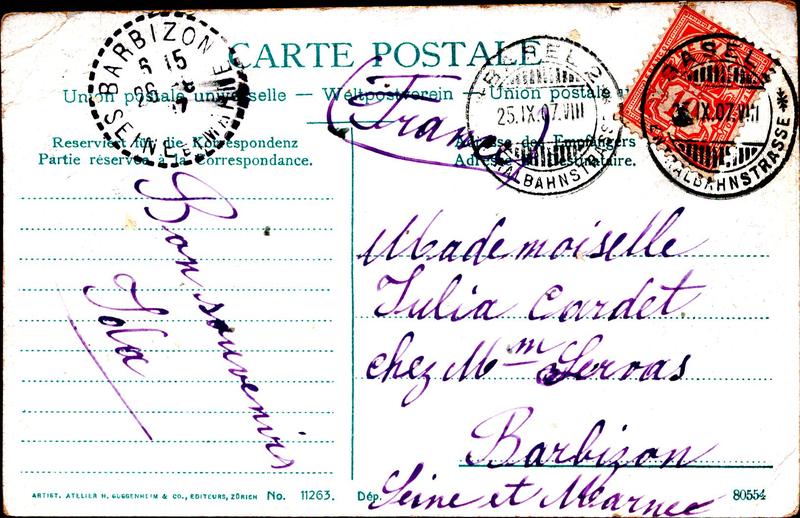 CARTE POSTALE
Union postale universelle — Weltpostverein — Union postale
Reserviert für die Korrespondenz
Partie réservée à la Correspondance.
Adresse des Empfängers
Adresse du Destinataire.
BARBIZON
6 15
26
SEINE ET MARNE
BASEL 2
25.IX.07.VIII
CENTRALBAHNSTRASSE
BASEL 2
25.IX.07.VIII
CENTRALBAHNSTRASSE
(France)
Bon souvenirs
Ida
Mademoiselle
Julia Cardet
chez Mme Servas
Barbizon
Seine et Marnee
ARTIST. ATELIER H. GUGGENHEIM & CO., EDITEURS, ZÜRICH No. 11263. Dép.
80554